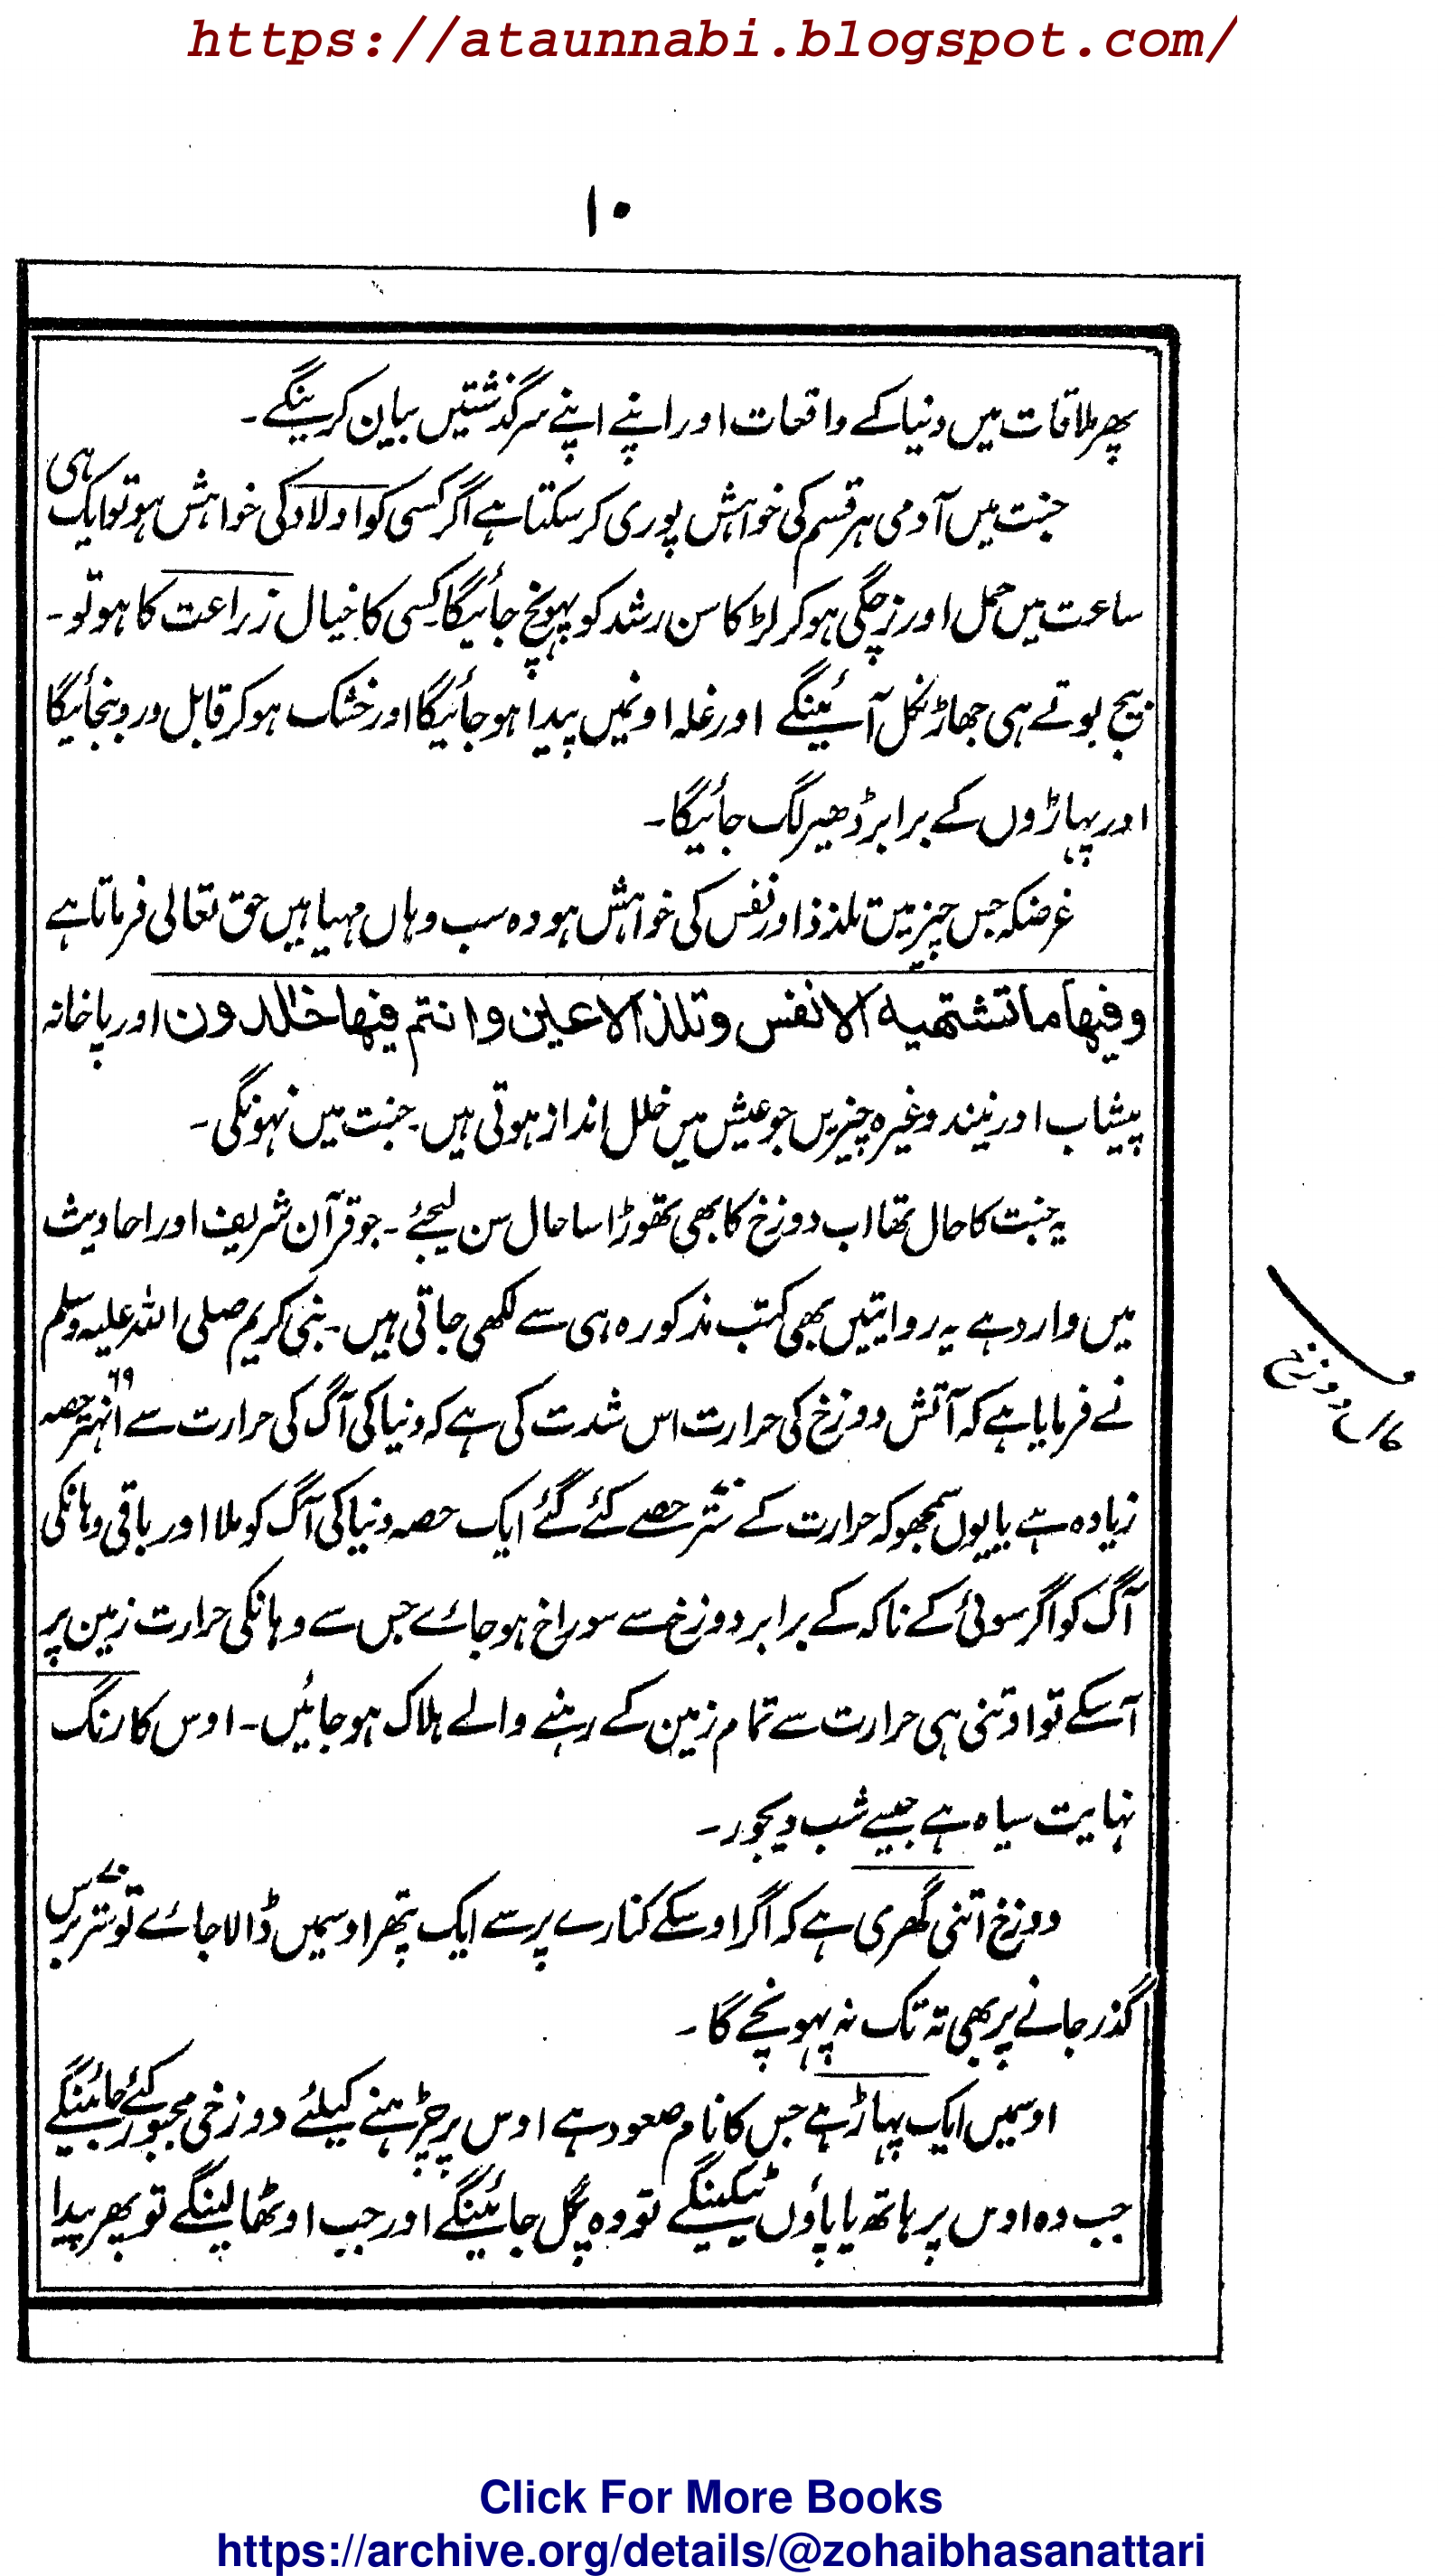 https://ataunnabi.blogspot.com/
۱۰
پھر ملاقات میں دنیا کے واقعات اور اپنے اپنے سرگذشتیں بیان کرینگے۔
جنت میں آدمی ہر قسم کی خواہش پوری کر سکتا ہے اگر کسی کو اولاد کی خواہش ہو تو ایک ہی
ساعت میں حمل اور زچگی ہو کر لڑکا سن رشد کو پہونچ جائیگا کسی کا خیال زراعت کا ہو تو۔
بیج بوتے ہی جھاڑ نکل آئینگے اور غلہ اونمیں پیدا ہو جائیگا اور خشک ہو کر قابل درو بنجائیگا
اور پہاڑوں کے برابر ڈھیر لگ جائیگا۔
غرضکہ جس چیز میں تلذذ اور نفس کی خواہش ہو وہ سب وہاں مہیا ہیں حق تعالی فرماتا ہے
وفیھا ما تشتھیه الانفس وتلذ الاعین وانتم فیھا خٰلدون اور پاخانہ
پیشاب اور نیند وغیرہ چیزیں جو عیش میں خلل انداز ہوتی ہیں۔ جنت میں نہونگی۔
یہ جنت کا حال تھا اب دوزخ کا بھی تھوڑا سا حال سن لیجئے۔ جو قرآن شریف اور احادیث
میں وارد ہے یہ روایتیں بھی کتب مذکورہ ہی سے لکھی جاتی ہیں۔ نبی کریم صلی اللہ علیہ وسلم
نے فرمایا ہے کہ آتش دوزخ کی حرارت اس شدت کی ہے کہ دنیا کی آگ کی حرارت سے انہتر ۶۹ حصہ
زیادہ ہے یا یوں سمجھو کہ حرارت کے ستر حصے کئے گئے ایک حصہ دنیا کی آگ کو ملا اور باقی وہانکی
آگ کو اگر سوئی کے ناکہ کے برابر دوزخ سے سوراخ ہو جائے جس سے وہانکی حرارت زمین پر
آسکے تو اوتنی ہی حرارت سے تمام زمین کے رہنے والے ہلاک ہو جائیں۔ اوس کا رنگ
نہایت سیاہ ہے جیسے شب دیجور۔
دوزخ اتنی گھری ہے کہ اگر اوسکے کنارے پر سے ایک پتھر اوسمیں ڈالا جائے تو ستر برس
گذر جانے پر بھی تہ تک نہ پہونچے گا۔
اوسمیں ایک پہاڑ ہے جس کا نام صعود ہے اوس پر چڑہنے کیلئے دوزخی مجبور کئے جائینگے
جب وہ اوس پر ہاتھ یا پاؤں ٹیکینگے تو وہ پگل جائینگے اور جب اوٹھا لینگے تو پھر پیدا
دوزخ
Click For More Books
https://archive.org/details/@zohaibhasanattari